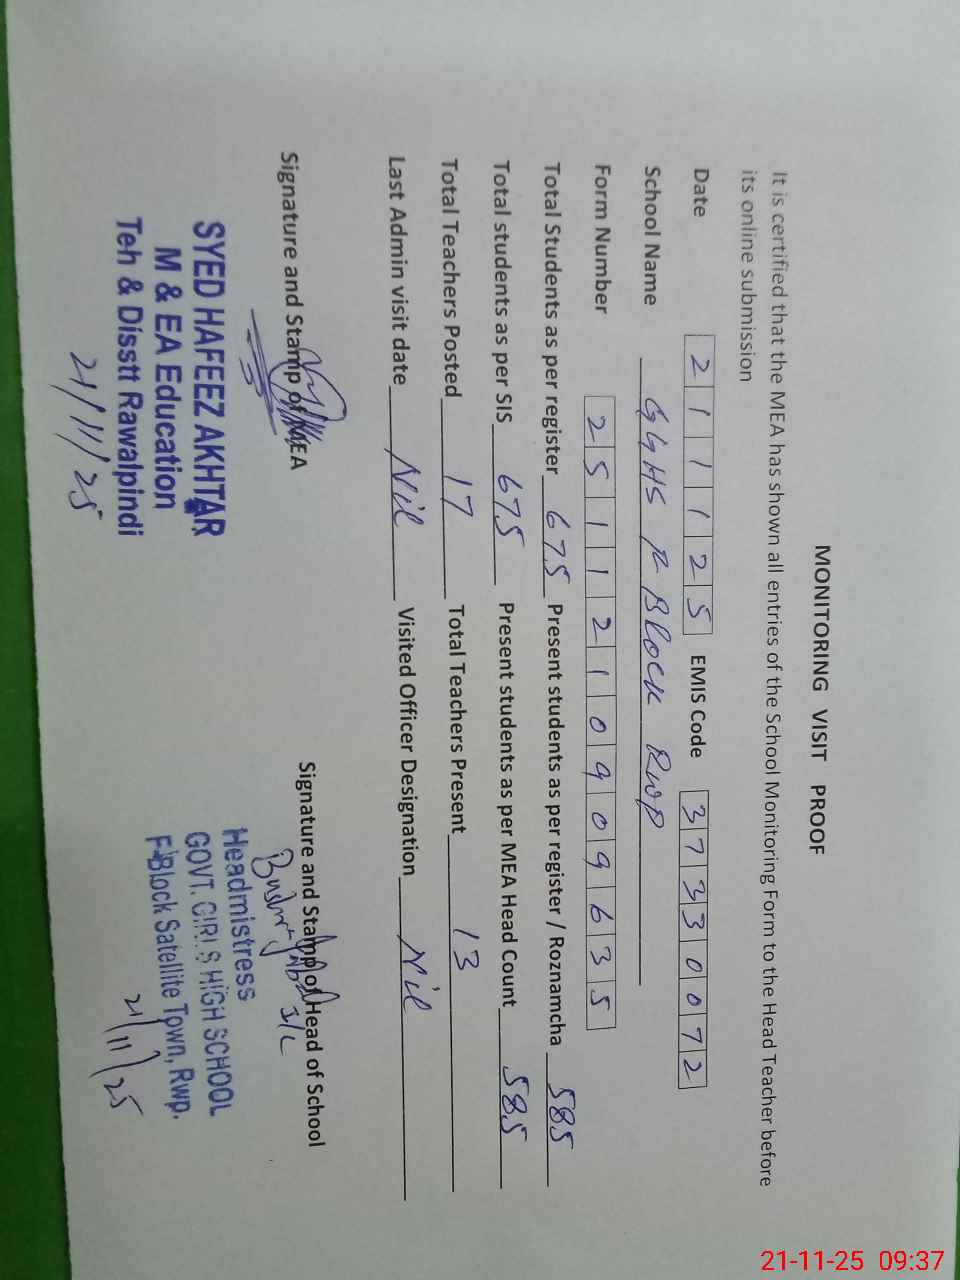 MONITORING VISIT PROOF
It is certified that the MEA has shown all entries of the School Monitoring Form to the Head Teacher before
its online submission
Date 211125 EMIS Code 37330072
School Name GGHS F Block Rwp
Form Number 2511210909635
Total Students as per register 675 Present students as per register / Roznamcha 585
Total students as per SIS 675 Present students as per MEA Head Count 585
Total Teachers Posted 17 Total Teachers Present 13
Last Admin visit date Nil Visited Officer Designation Nil
Signature and Stamp of MEA
SYED HAFEEZ AKHTAR
M & EA Education
Teh & Disstt Rawalpindi
21/11/25
Signature and Stamp of Head of School
I/C
Headmistress
GOVT. GIRLS HIGH SCHOOL
F-Block Satellite Town, Rwp.
21/11/25
21-11-25 09:37